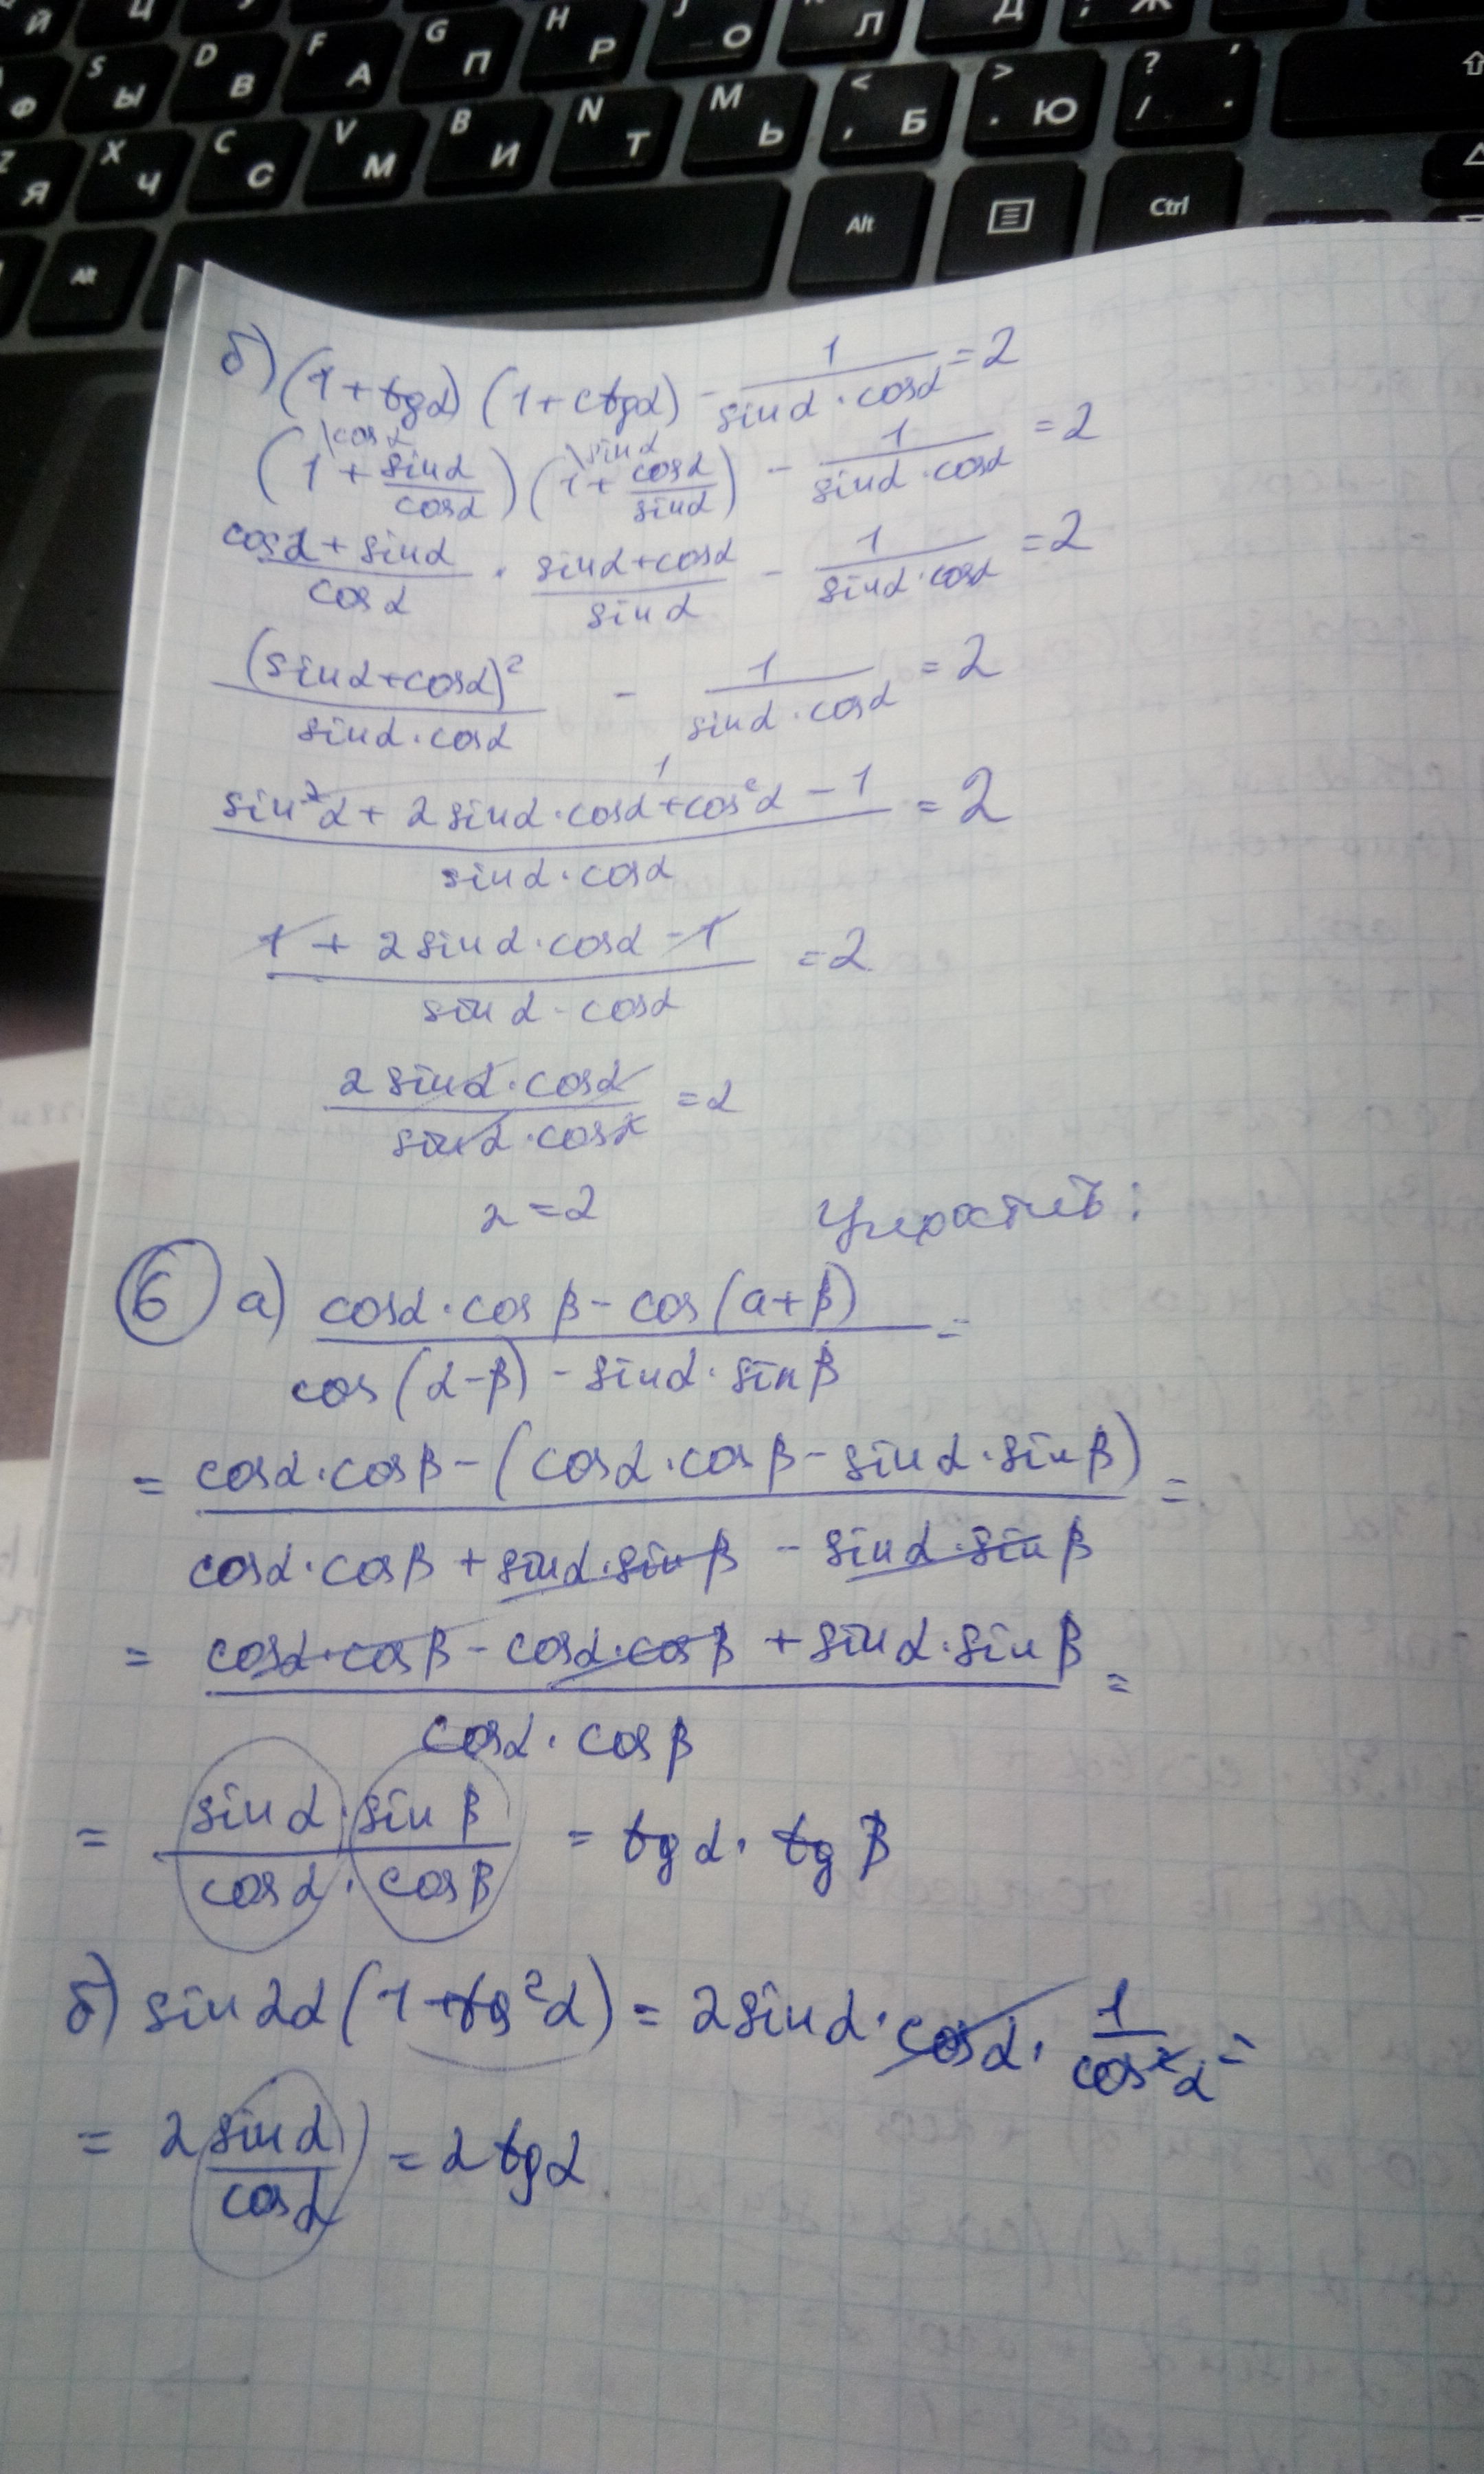 Й Ц G H J Л Д ; Ж
Ф S Ы D В F А П Р О ? ' /
Z Я X Ч C С V М B И N Т M Ь < , Б > . Ю
Alt Alt Ctrl
б) (1+tgα) (1+ctgα) - 1/(sinα·cosα) = 2
(1\cosα + sinα/cosα) (1\sinα + cosα/sinα) - 1/(sinα·cosα) = 2
(cosα+sinα)/cosα · (sinα+cosα)/sinα - 1/(sinα·cosα) = 2
(sinα+cosα)²/(sinα·cosα) - 1/(sinα·cosα) = 2
(sin²α + 2sinα·cosα + cos²α - 1)/(sinα·cosα) = 2
(1 + 2sinα·cosα - 1)/(sinα·cosα) = 2
(2sinα·cosα)/(sinα·cosα) = 2
2 = 2
Упростить:
6 а) (cosα·cosβ - cos(α+β))/(cos(α-β) - sinα·sinβ) =
= (cosα·cosβ - (cosα·cosβ - sinα·sinβ))/(cosα·cosβ + sinα·sinβ - sinα·sinβ) =
= (cosα·cosβ - cosα·cosβ + sinα·sinβ)/(cosα·cosβ) =
= (sinα·sinβ)/(cosα·cosβ) = tgα·tgβ
б) sin2α(1+tg²α) = 2sinα·cosα·1/cos²α =
= 2 sinα/cosα = 2tgα